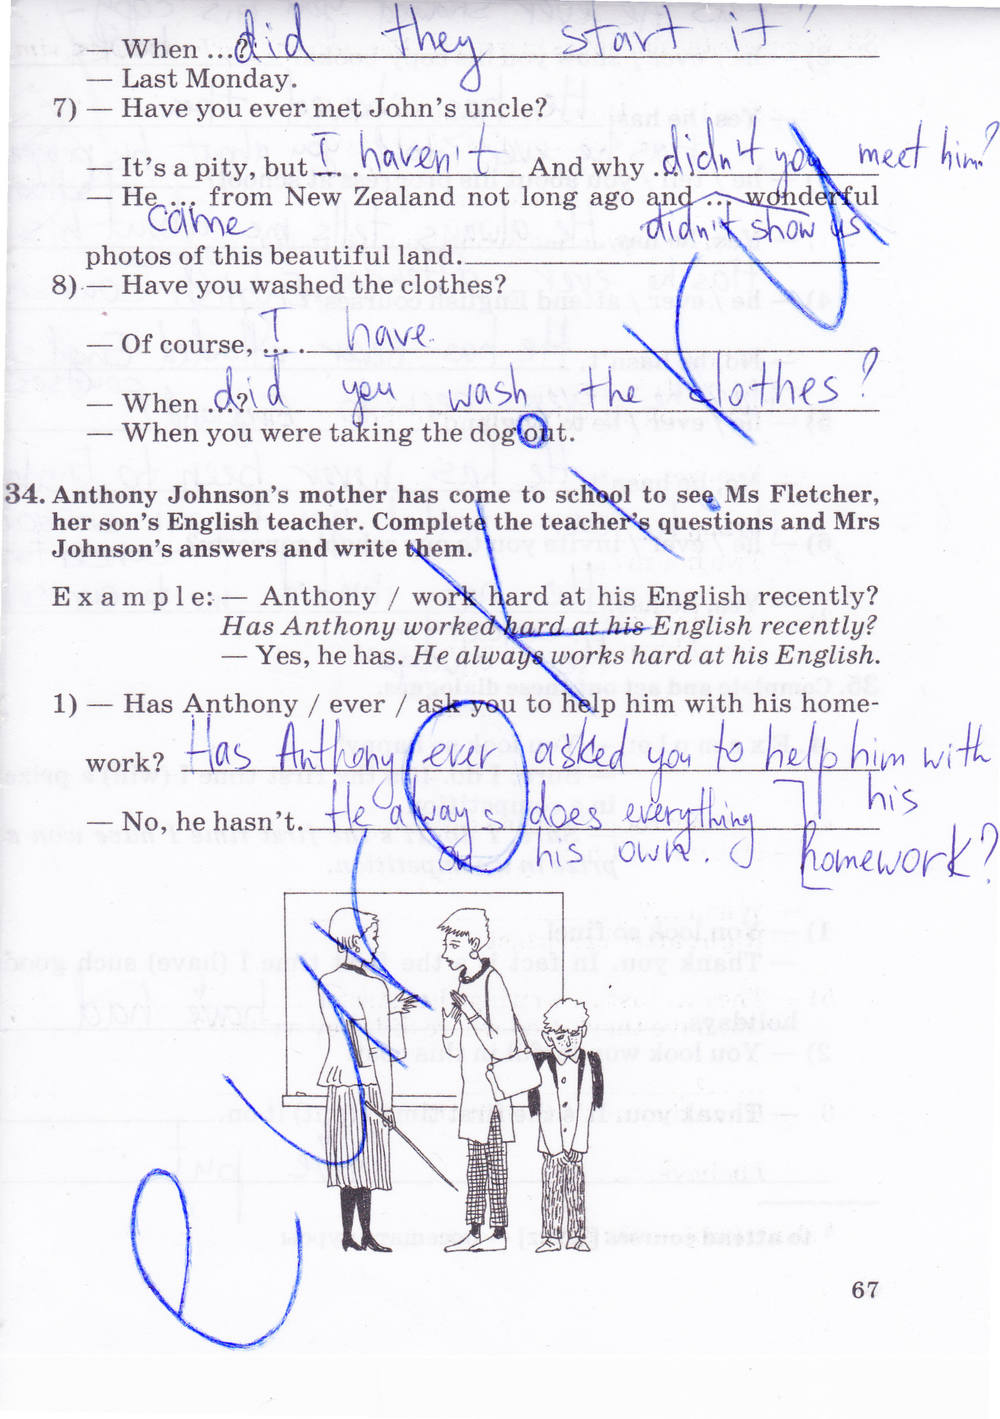 — When ...? did they start it?
— Last Monday.
7) — Have you ever met John's uncle?
It's a pity, but ... I haven't. And why ... didn't you meet him?
— He ... from New Zealand not long ago and ... wonderful
came didn't show us
photos of this beautiful land.
8) — Have you washed the clothes?
— Of course, ... I have.
— When ...? did you wash the clothes?
— When you were taking the dog out.
34. Anthony Johnson's mother has come to school to see Ms Fletcher,
her son's English teacher. Complete the teacher's questions and Mrs
Johnson's answers and write them.
Example: — Anthony / work hard at his English recently?
Has Anthony worked hard at his English recently?
— Yes, he has. He always works hard at his English.
1) — Has Anthony / ever / ask you to help him with his home-
work? Has Anthony ever asked you to help him with
his
— No, he hasn't. He always does everything
on his own. homework?
67